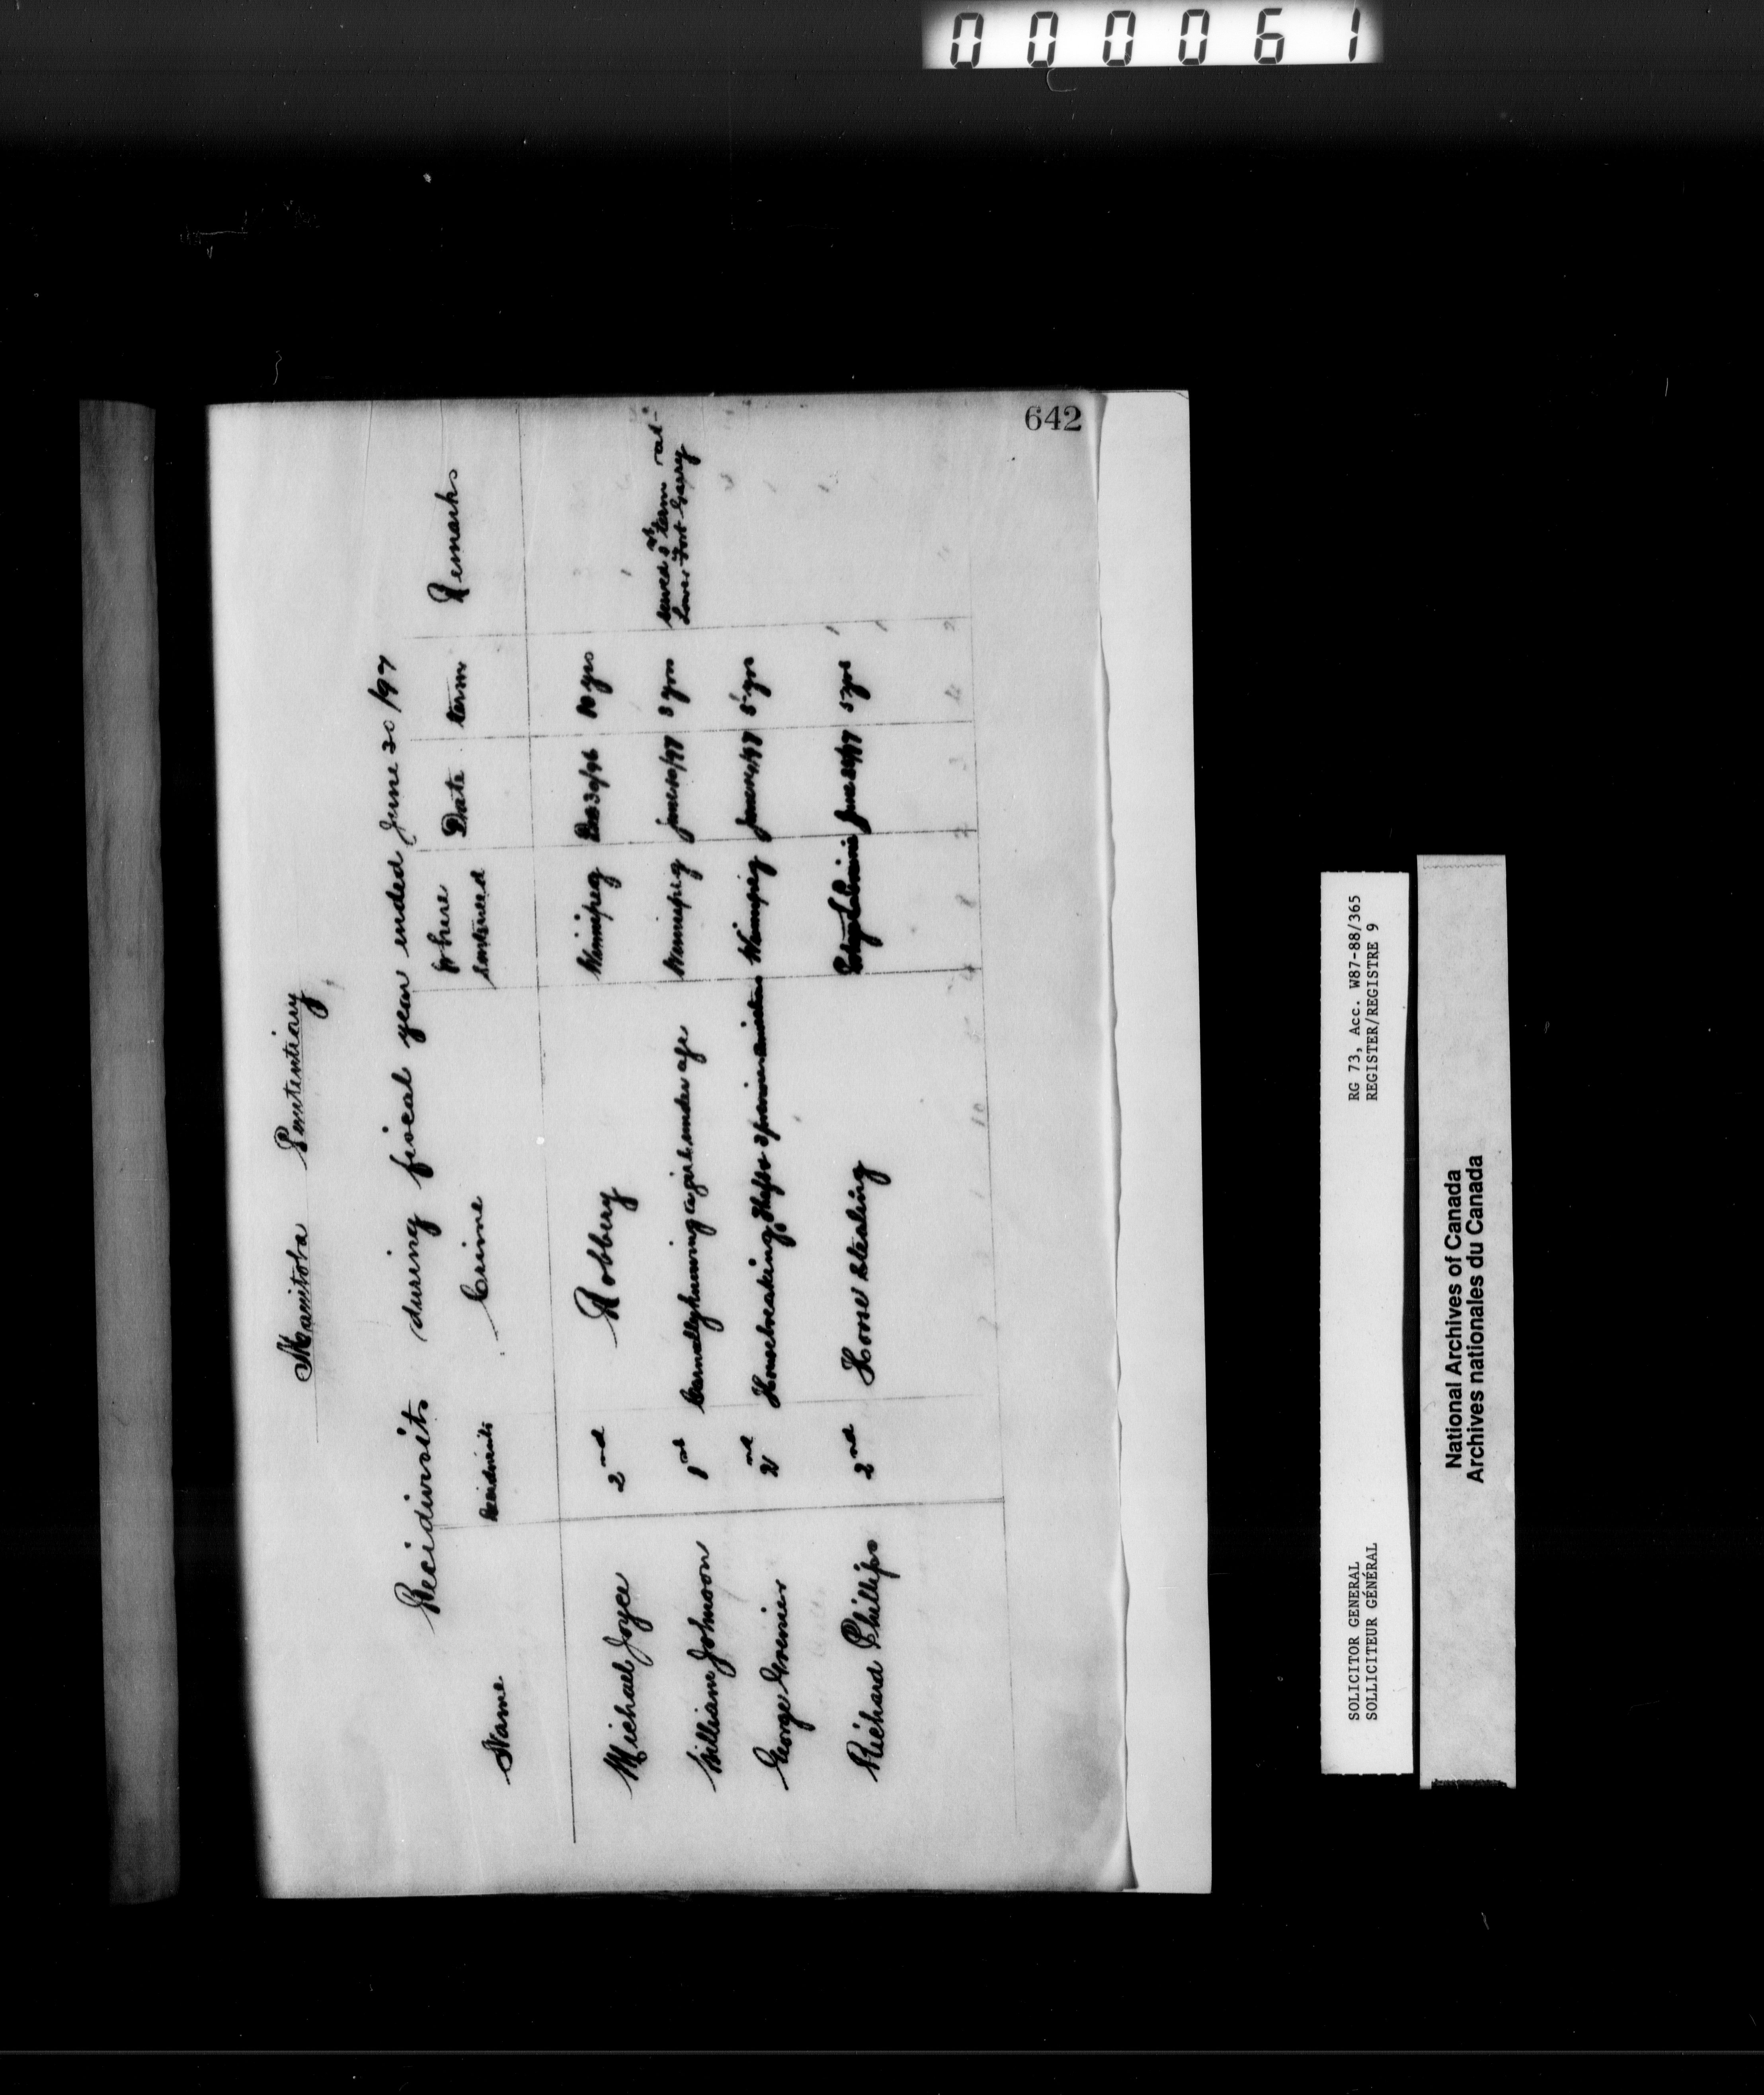 000061
642
Manitoba Penitentiary
Recidivists during fiscal year ended June 30/97
Name Recidivists Crime Where sentenced Date term Remarks
Michael Joyce 2nd Robbery Winnipeg Dec 30/96 10 yrs
William Johnson 1st Carnally knowing a girl under age Winnipeg June 10/97 3 yrs served 1st term at
Lower Fort Garry
George Grenier 2nd Housebreaking, theft & previous conviction Winnipeg June 14/97 5 yrs
Richard Phillips 2nd Horse stealing Portage la Prairie June 24/97 5 yrs
SOLICITOR GENERAL RG 73, Acc. W87-88/365
SOLLICITEUR GÉNÉRAL REGISTER/REGISTRE 9
National Archives of Canada
Archives nationales du Canada